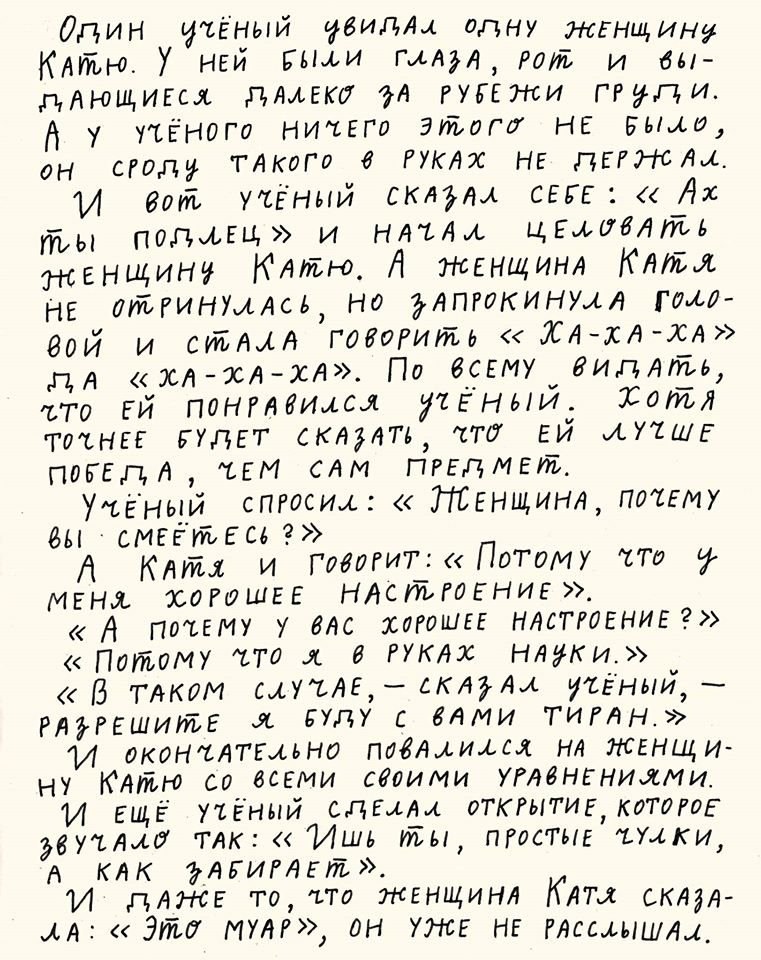 Один учёный увидал одну женщину
Катю. У ней были глаза, рот и вы-
дающиеся далеко за рубежи груди.
А у учёного ничего этого не было,
он сроду такого в руках не держал.
И вот учёный сказал себе: « Ах
ты подлец» и начал целовать
женщину Катю. А женщина Катя
не отринулась, но запрокинула голо-
вой и стала говорить « Ха-ха-ха»
да « ха-ха-ха». По всему видать,
что ей понравился учёный. Хотя
точнее будет сказать, что ей лучше
победа, чем сам предмет.
Учёный спросил: « Женщина, почему
вы смеётесь?»
А Катя и говорит: « Потому что у
меня хорошее настроение».
« А почему у вас хорошее настроение?»
« Потому что я в руках науки.»
« В таком случае, – сказал учёный, –
разрешите я буду с вами тиран.»
И окончательно повалился на женщи-
ну Катю со всеми своими уравнениями.
И ещё учёный сделал открытие, которое
звучало так: « Ишь ты, простые чулки,
а как забирает».
И даже то, что женщина Катя сказа-
ла: « Это муар», он уже не расслышал.